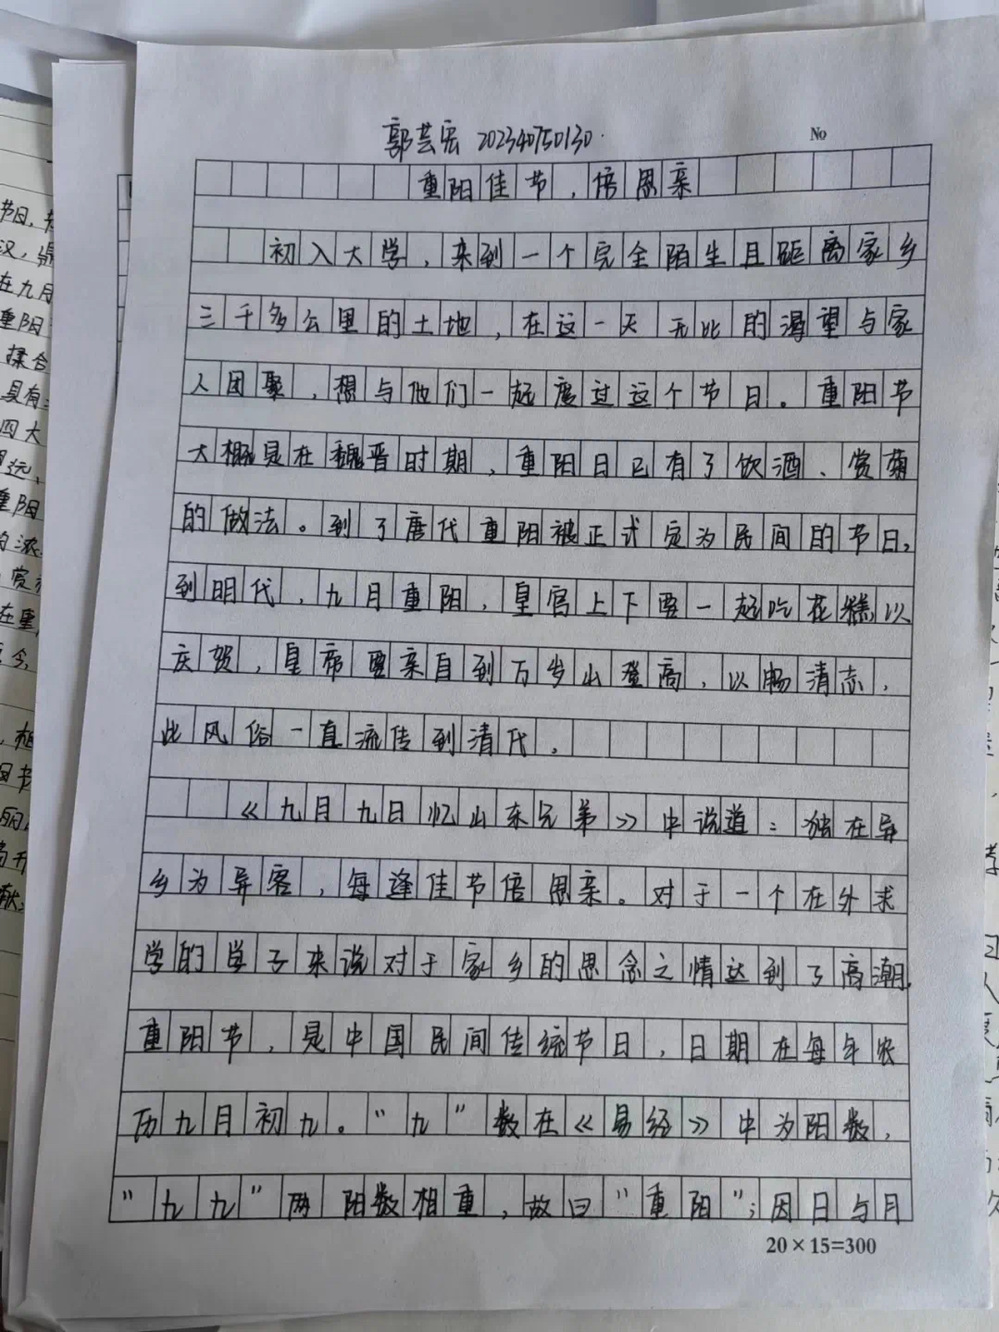 郭芸宏 202340750130.
No
重阳佳节，倍思亲
初入大学，来到一个完全陌生且距离家乡
三千多公里的土地，在这一天无比的渴望与家
人团聚，想与他们一起度过这个节日。重阳节
大概是在魏晋时期，重阳日已有了饮酒、赏菊
的做法。到了唐代重阳被正式定为民间的节日，
到明代，九月重阳，皇宫上下要一起吃花糕以
庆贺，皇帝要亲自到万岁山登高，以畅清志，
此风俗一直流传到清代。
《九月九日忆山东兄弟》中说道：独在异
乡为异客，每逢佳节倍思亲。对于一个在外求
学的学子来说对于家乡的思念之情达到了高潮。
重阳节，是中国民间传统节日，日期在每年农
历九月初九。“九”数在《易经》中为阳数，
“九九”两阳数相重，故曰“重阳”；因日与月
20×15=300